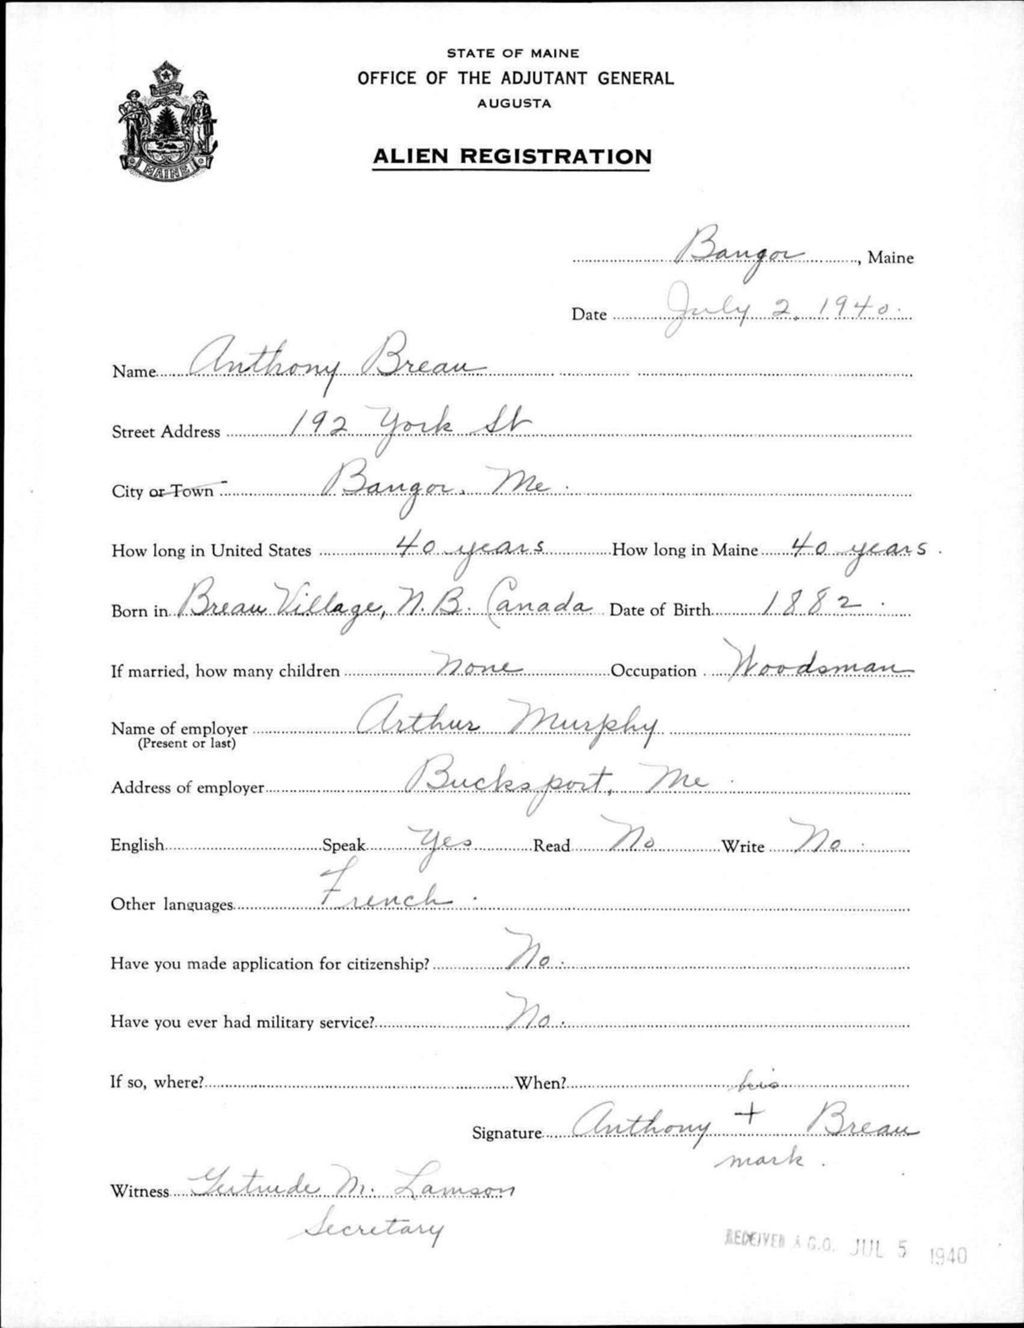 STATE OF MAINE
OFFICE OF THE ADJUTANT GENERAL
AUGUSTA
ALIEN REGISTRATION
MAINE
Bangor, Maine
Date July 2, 1940.
Name Anthony Breau
Street Address 192 York St
City or Town Bangor, Me.
How long in United States 40 years How long in Maine 40 years.
Born in Breau Village, N.B. Canada Date of Birth 1882.
If married, how many children None Occupation Woodsman
Name of employer Arthur Murphy
(Present or last)
Address of employer Bucksport, Me.
English Speak Yes Read No Write No.
Other languages French.
Have you made application for citizenship? No.
Have you ever had military service? No.
If so, where? When?
his
Signature Anthony + Breau
mark.
Witness Gertrude M. Lamson
Secretary
RECEIVED A.G.O. JUL 5 1940